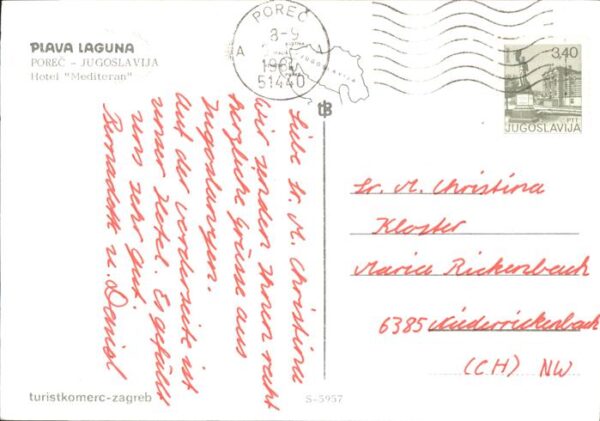 PLAVA LAGUNA
POREČ - JUGOSLAVIJA
Hotel "Mediteran"
POREČ
8-9
A
51440
JUGOSLAVIJA
3,40
PTT
JUGOSLAVIJA
Liebe Sr. M. Christina
Wir senden Ihnen recht
herzliche Grüsse aus
Jugoslawien.
Auf der Vorderseite ist
unser Hotel. Es gefällt
uns sehr gut.
Bernadett u. Daniel
Sr. M. Christina
Kloster
Maria Rickenbach
6385 Niederrickenbach
(CH) NW
turistkomerc-zagreb
S-5957